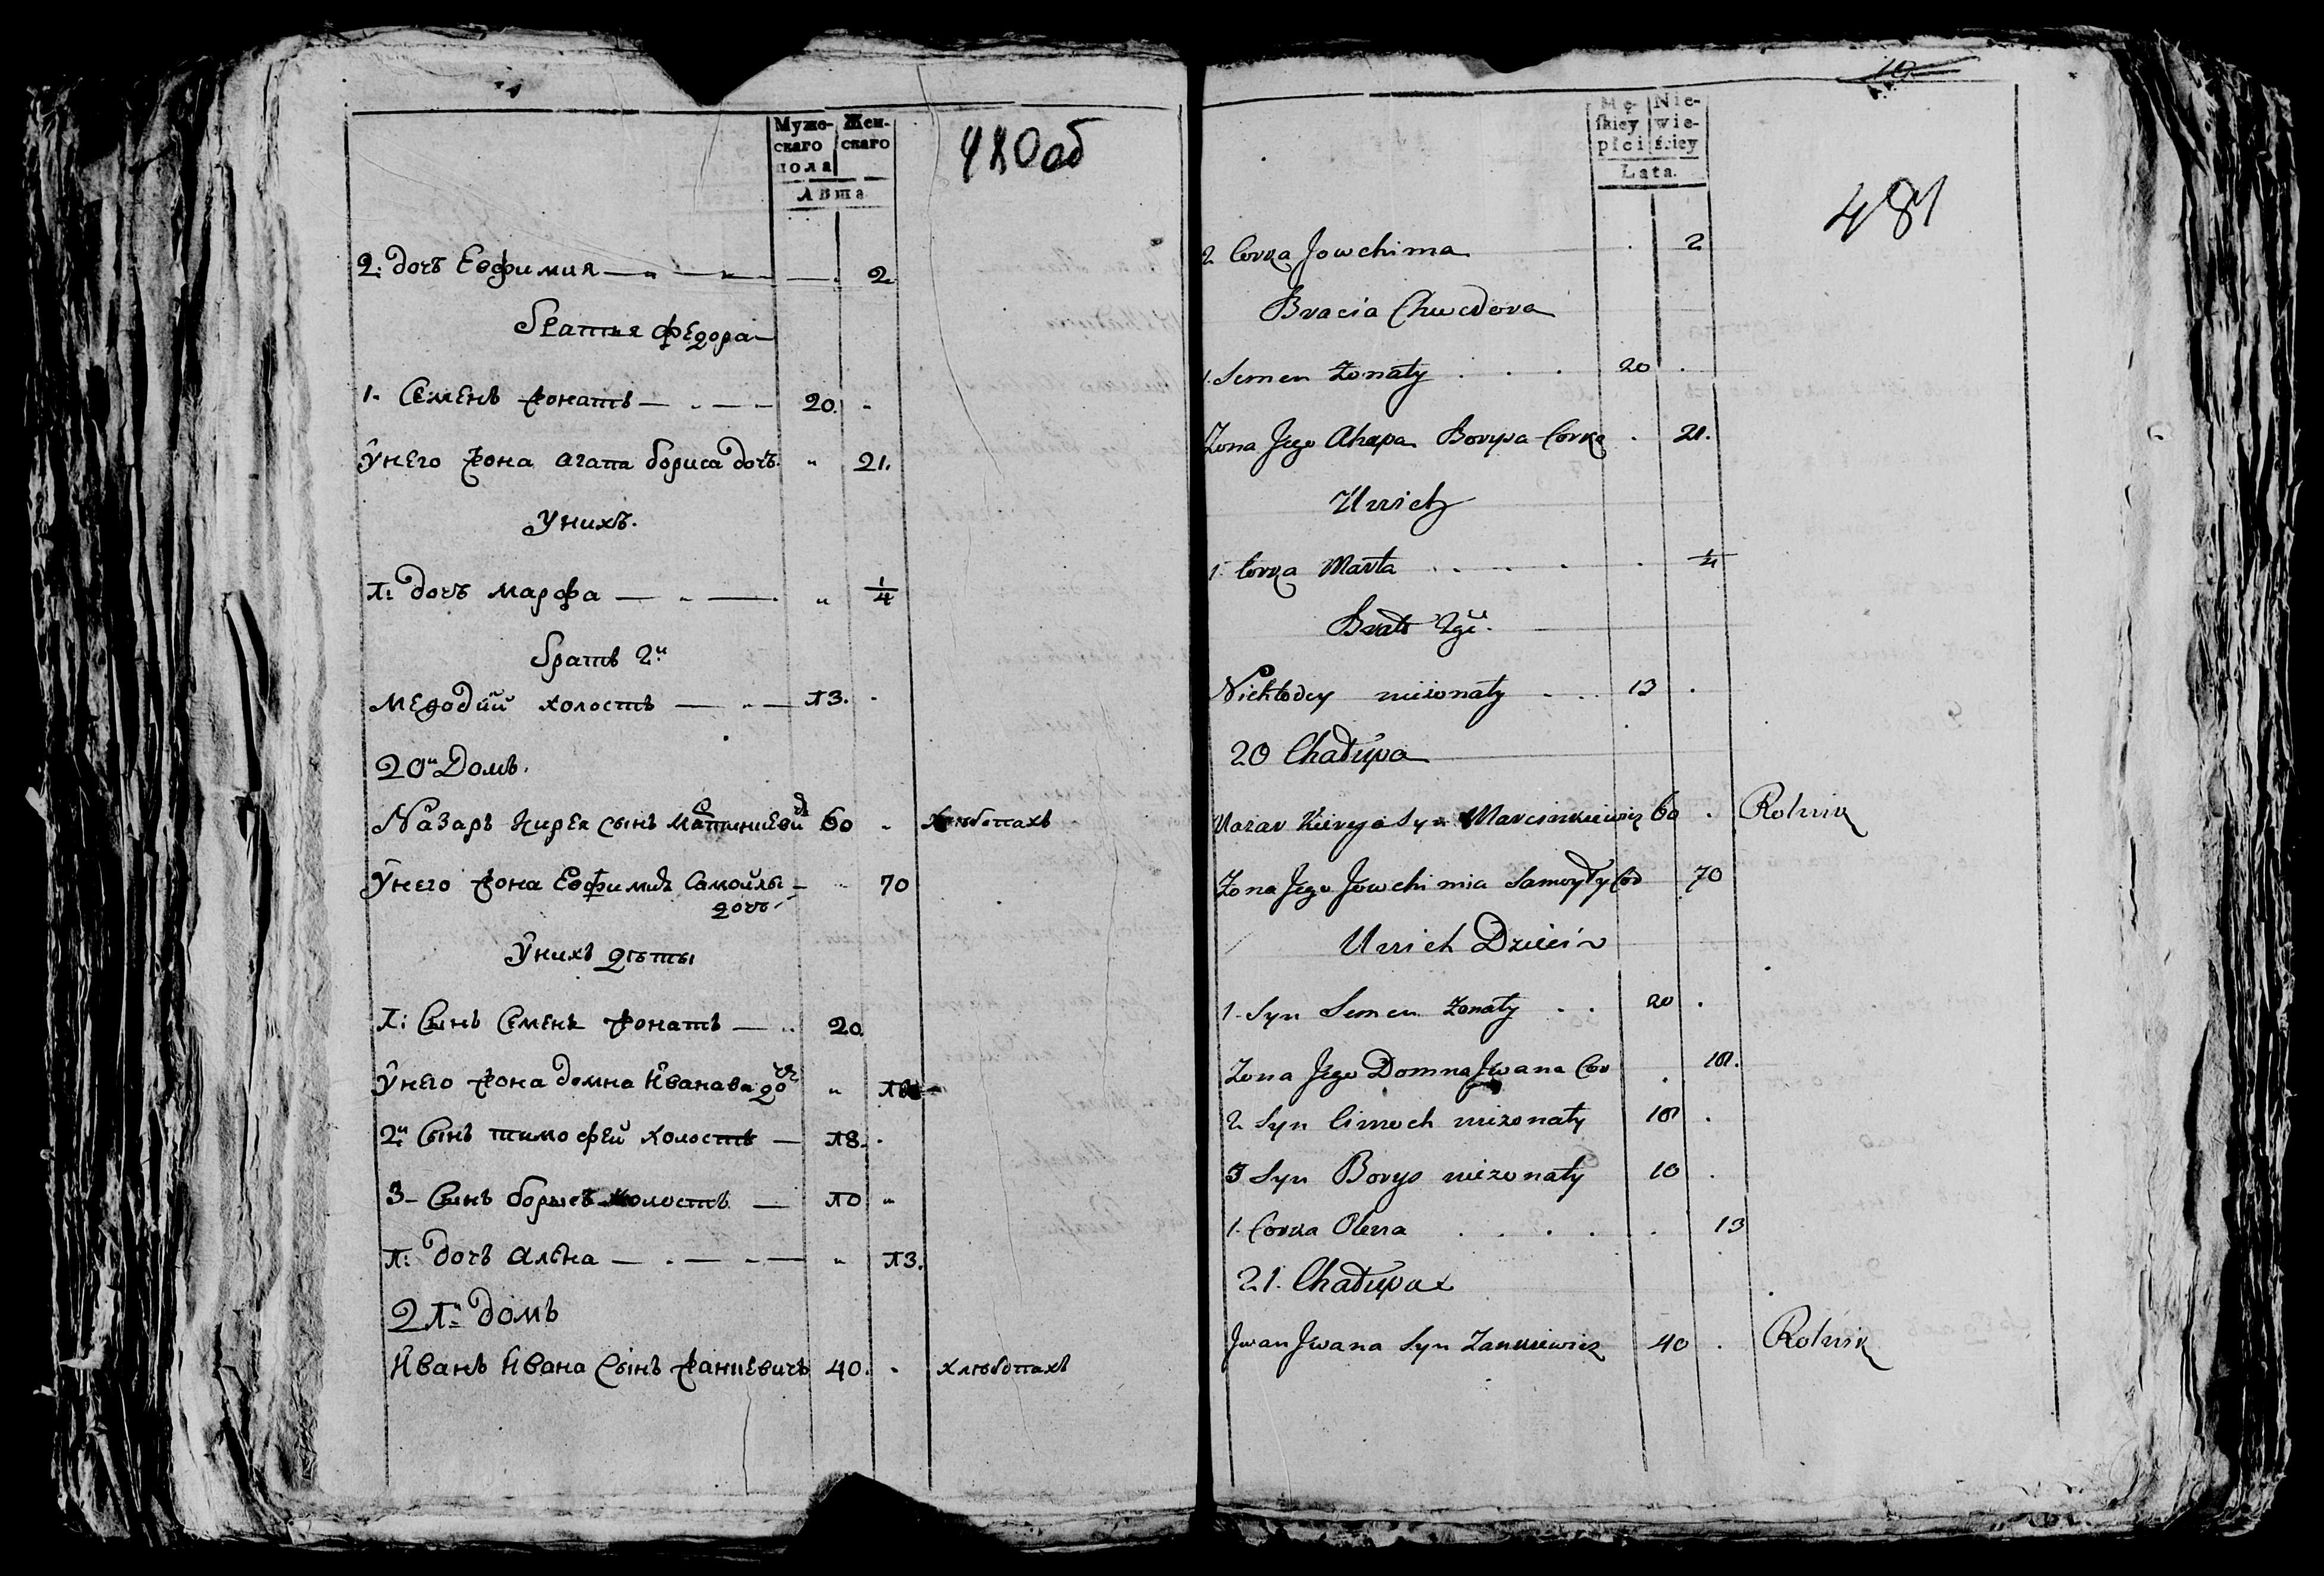 Муже-
скаго
пола
Жен-
скаго
Лѣта
480об
2: дочъ Евфимия 2
Братья Федора
1. Семенъ жонатъ 20.
У него жона агапа бориса дочъ 21.
У нихъ.
1: дочъ марфа 1/4
Братъ 2й
Мефодий холостъ 13.
20й Домъ.
Назаръ Кирея сынъ 60 хлебопахъ
У него жона Евфимия Самойлы 70
дочъ
У нихъ дѣты
1: Сынъ Семенъ жонатъ 20.
У него жона домна Ивана доч
2й Сынъ тимофей холостъ 18.
3 Сынъ борысъ холостъ 10
1: дочъ алѣна 13.
21й домъ
Иванъ Ивана Сынъ жанкевичъ 40. хлебопахъ
10
Mę-
skiey
płci
Nie-
wie-
ściey
Lata.
481
2 Corka Jowchima 2
Bracia Chwedora
1. Semen żonaty 20
Zona Jego Ahapa Borysa Corka 21.
U nich
1 Corka Marta 1/4
Brat 2gi.
Nichłodey nieżonaty 13
20 Chałupa
Nazar Kireja Syn Marcinkiewicz 60 Rolnik
Zona Jego Jowchimia Samoyły Cor 70
U nich Dzieci
1. Syn Semen żonaty 20
Zona Jego Domna Jwana Cor 18.
2 Syn Cimoch nieżonaty 18
3 Syn Borys nieżonaty 10
1. Corka Olena 13
21. Chałupa
Jwan Jwana Syn Zankiewicz 40 Rolnik